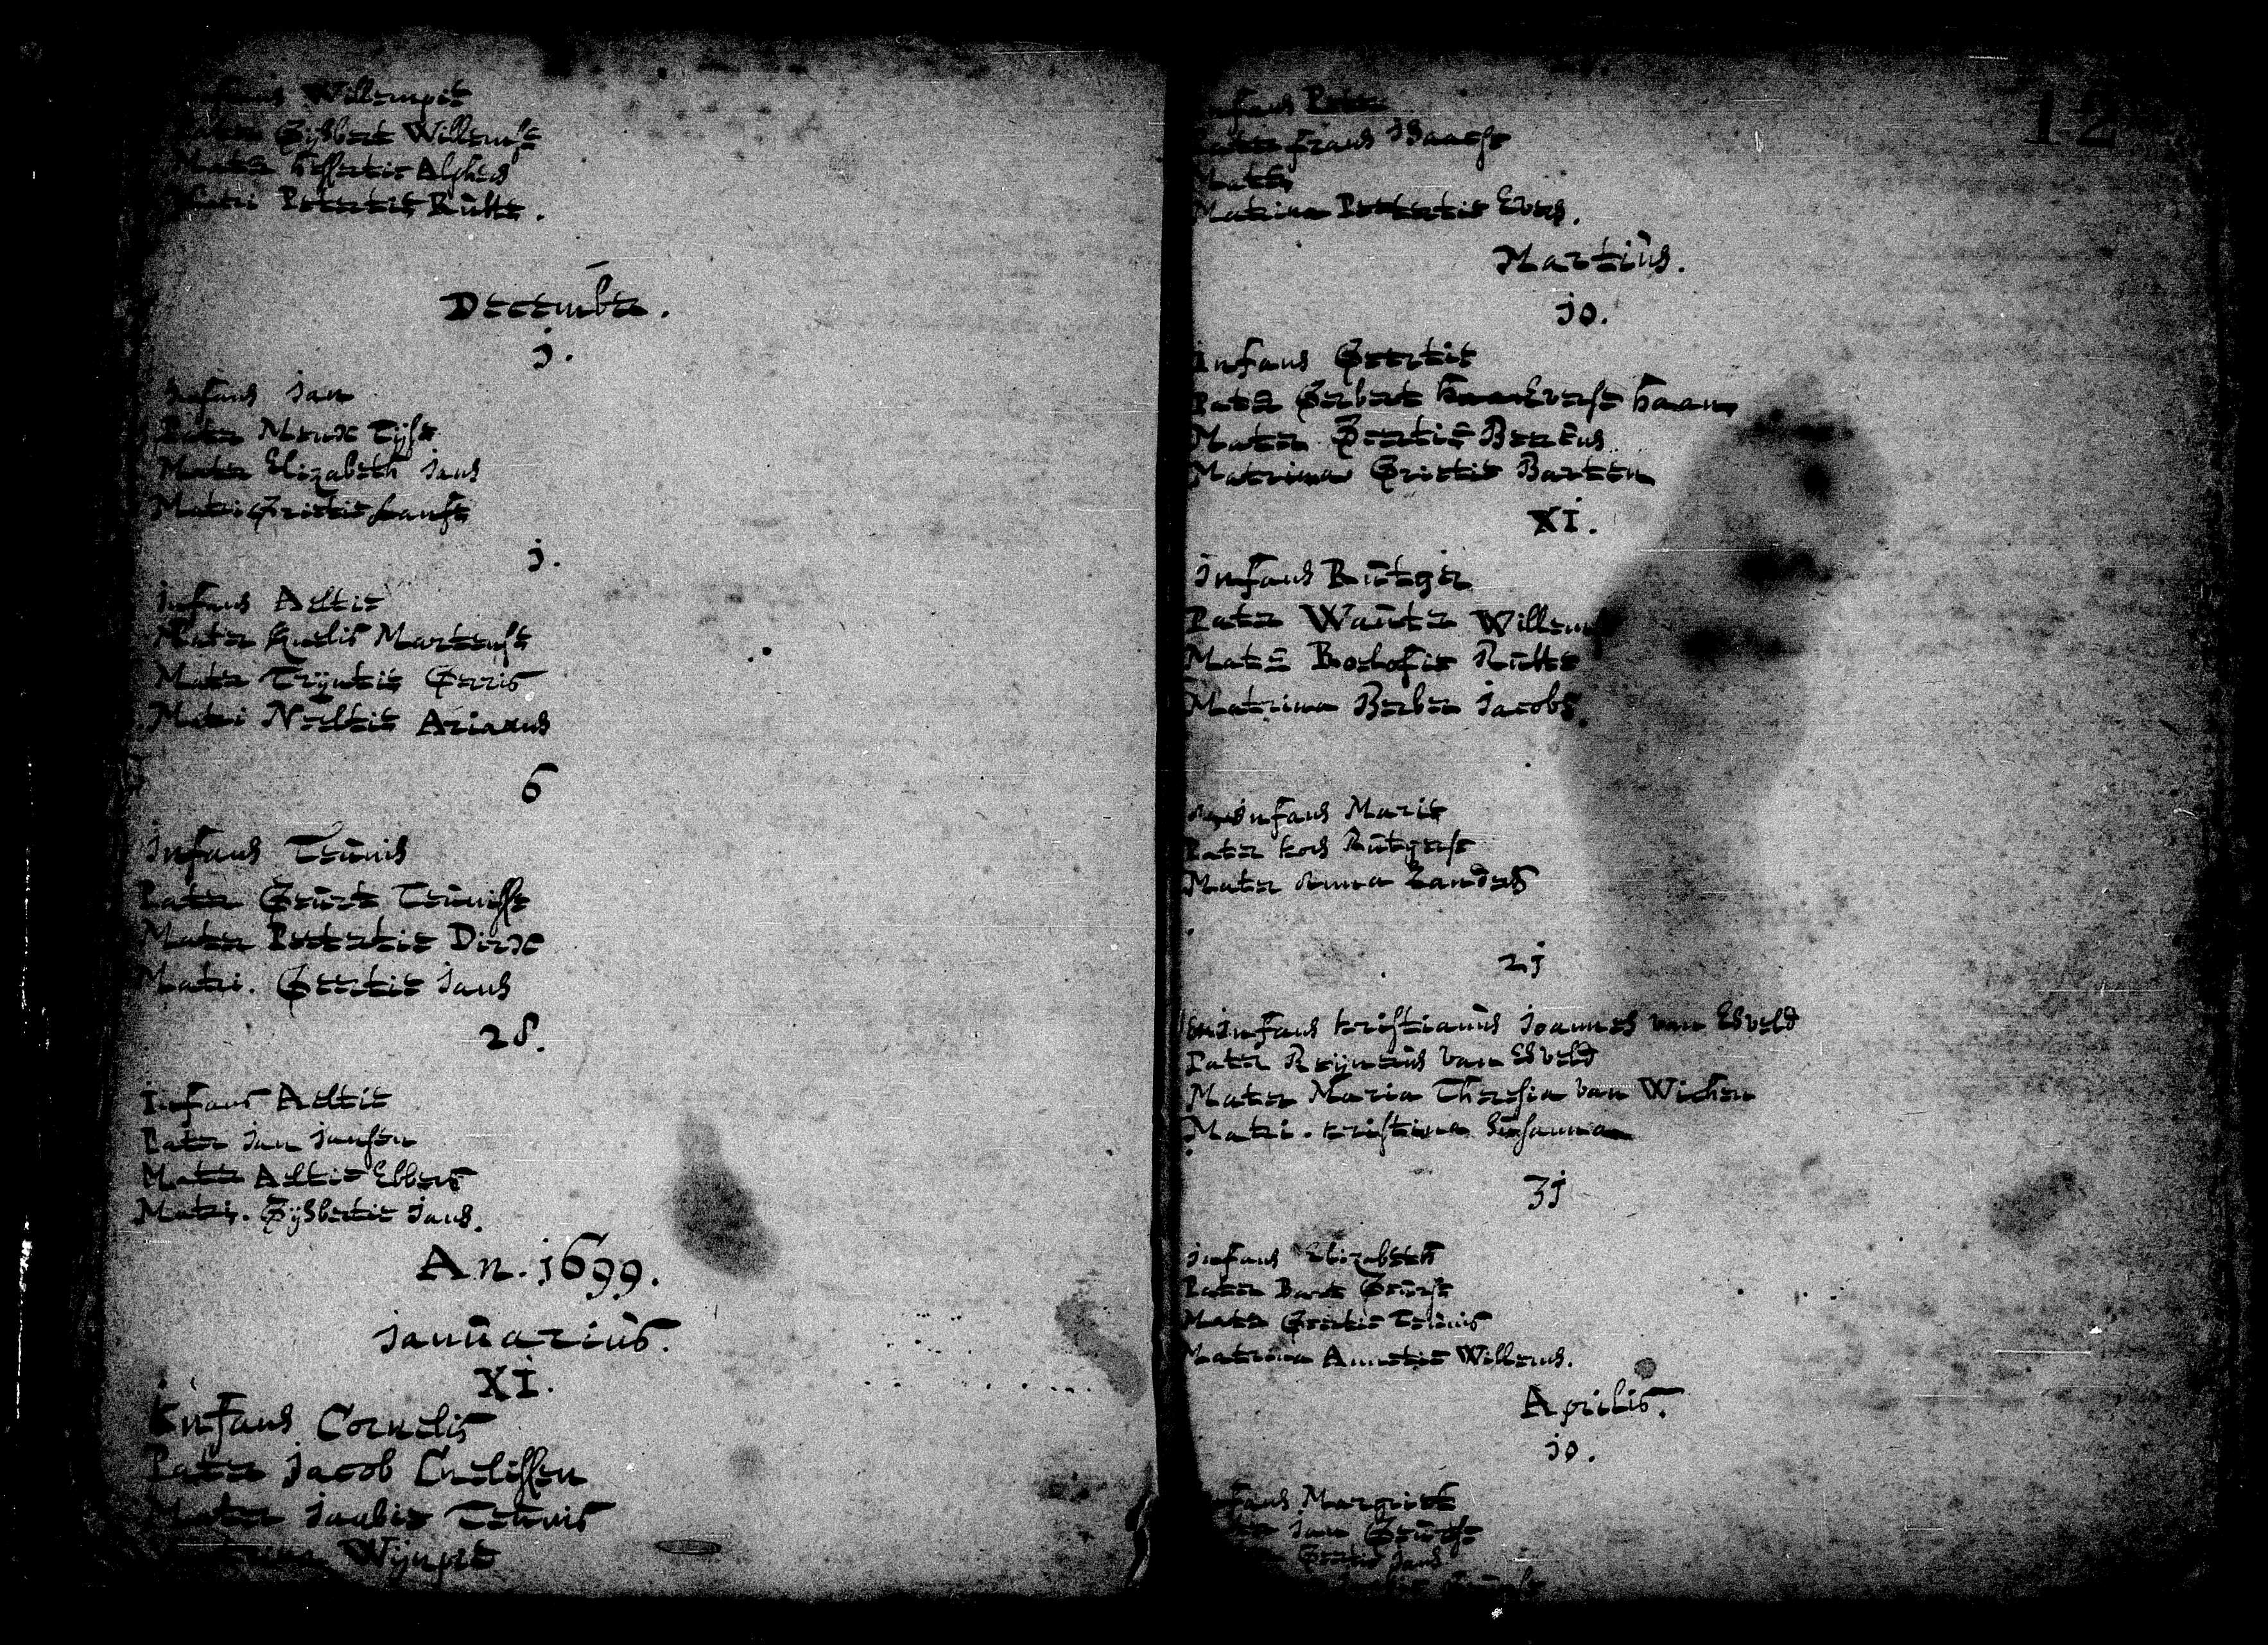 Infans Willempie
Pater Gijsbert Willemse
Mater Alphers
Matri Petertie Rutte.
Decembr.
j.
Infans Jan
Pater Meux Tijse
Mater Elizabeth Jans
Matri Grietie Hanse
j.
Infans Aeltie
Pater Knelis Martense
Mater Trijntie Gerris
Matri Neeltie Ariaens
6
Infans Teunis
Pater Geurt Teunisse
Mater Petertie Dirx
Matri. Geertie Jans
28.
Infans Aeltie
Pater Jan Jansen
Mater Aeltie Ebbers
Matri. Gijsbertie Jans.
An. j699.
Januarius.
XI.
Infans Cornelis
Pater Jacob Cnelissen
Mater Jantie Teunis
Wijmpie
12
Infans Peter
Pater Frans Isaacse
Mater
Matrina Petertie Evers.
Martius.
jo.
Infans Geertie
Pater Gerbert Everse Haan
Mater Geertie Berens
Matrina Grietie Barten
XI.
Infans Rutger
Pater Wouter Willems
Mater Roelofie Rutte
Matrina Berber Jacobs
Infans Marie
Pater Kors Rutgerse
Mater Anna Zanders
2j
Infans Kristianus Joannes van Esveld
Pater Reijnerus van Esveld
Mater Maria Theresia van Wichen
Matri. Kristina Susanna
3j
Infans Elizabeth
Pater Bart Geurse
Mater Geertie Teunis
Matrina Annetie Willems.
Aprilis.
jo.
Infans Margriet
Pater Jan Geurtse
Geertie Jans